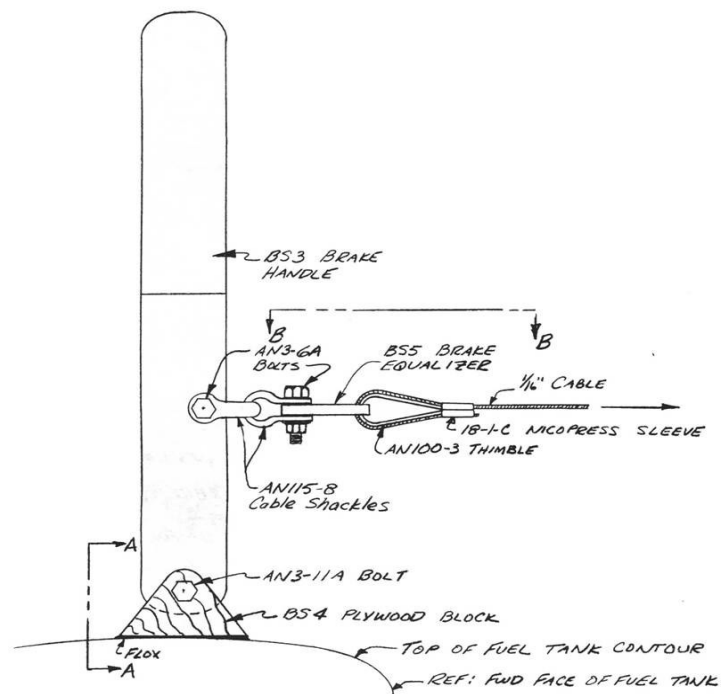 BS3 BRAKE
HANDLE
B
B
AN3-6A
BOLTS
BS5 BRAKE
EQUALIZER
1/16" CABLE
18-1-C NICOPRESS SLEEVE
AN100-3 THIMBLE
AN115-8
Cable Shackles
A
AN3-11A BOLT
BS4 PLYWOOD BLOCK
FLOX
TOP OF FUEL TANK CONTOUR
A
REF: FWD FACE OF FUEL TANK